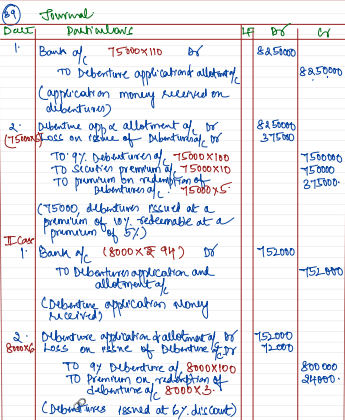 89 Journal
Date Particulars LF Dr Cr
1. Bank a/c 75000x110 Dr 8250000
To Debenture application and allotment a/c 8250000
(application money received on
debentures)
2. Debenture app & allotment a/c Dr 8250000
(75000x5) Loss on issue of Debentures a/c Dr 375000
To 9% Debentures a/c 75000x100 7500000
To Securities premium a/c 75000x10 750000
To premium on redemption of 375000
Debentures a/c 75000x5
(75000, debentures issued at a
premium of 10% redeemable at a
premium of 5%)
II Case
1. Bank a/c (8000x₹ 94) Dr 752000
To Debentures application and 752000
allotment a/c
(Debenture application money
received)
2. Debenture application & allotment a/c Dr 752000
8000x6 Loss on issue of Debenture a/c Dr 72000
To 9% Debenture a/c 8000x100 800000
To Premium on redemption of 24000
debenture a/c 8000x3
(Debentures issued at 6% discount)